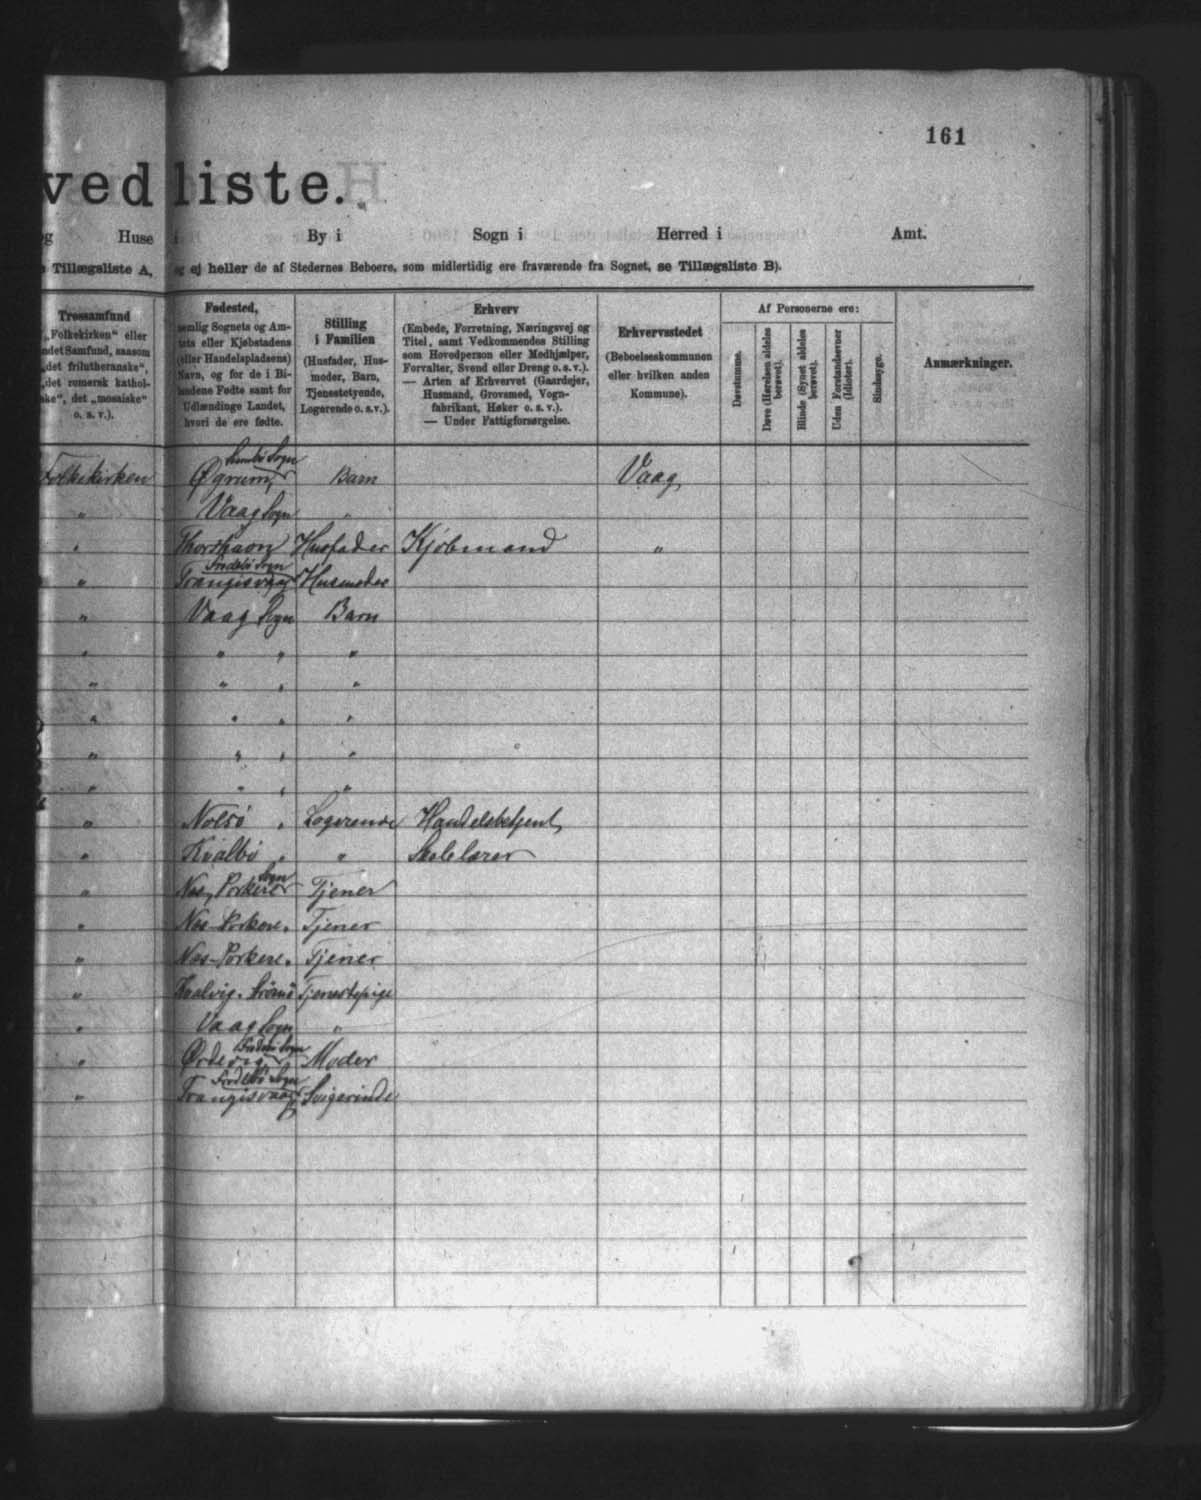 161
ved liste.
Huse i By i Sogn i Herred i Amt.
Tillægsliste A, og ej heller de af Stedernes Beboere, som midlertidig ere fraværende fra Sognet, se Tillægsliste B).
Trossamfund
„Folkekirken“ eller
ndet Samfund, saasom
„det frilutheranske“,
„det romersk kathol-
ske“, det „mosaiske“
o. s. v.).
Fødested,
nemlig Sognets og Am-
tets eller Kjøbstadens
(eller Handelspladsens)
Navn, og for de i Bi-
landene Fødte samt for
Udlændinge Landet,
hvori de ere fødte.
Stilling
i Familien
(Husfader, Hus-
moder, Barn,
Tjenestetyende,
Logerende o. s. v.).
Erhverv
(Embede, Forretning, Næringsvej og
Titel, samt Vedkommendes Stilling
som Hovedperson eller Medhjælper,
Forvalter, Svend eller Dreng o. s. v.).
— Arten af Erhvervet (Gaardejer,
Husmand, Grovsmed, Vogn-
fabrikant, Høker o. s. v.).
— Under Fattigforsørgelse.
Erhvervsstedet
(Beboelseskommunen
eller hvilken anden
Kommune).
Af Personerne ere:
Døvstumme.
Døve (Hørelsen aldeles
berøvet).
Blinde (Synet aldeles
berøvet).
Uden Forstandsevner
(Idioter).
Sindssyge.
Anmærkninger.
Sumbø Sogn
Folkekirken Øgrum, Barn Vaag,
" Vaag Sogn "
" Thorshavn Husfader Kjøbmand "
Frodebø Sogn
" Trangisvaag Husmoder
" Vaag Sogn Barn
" " " "
" " " "
" " " "
" " " "
" " " "
" Nolsø " Logerende Handelsbetjent,
" Kvalbø " " Skolelærer
Sogn
" Næs, Porkere Tjener
" Næs-Porkere. Tjener
" Næs-Porkere. Tjener
" Kvalvig. Strømø Tjenestepige
" Vaag Sogn "
Frodebø Sogn
" Ørdevig, Moder
Frodebø Sogn
" Trangisvaag Svigerinde